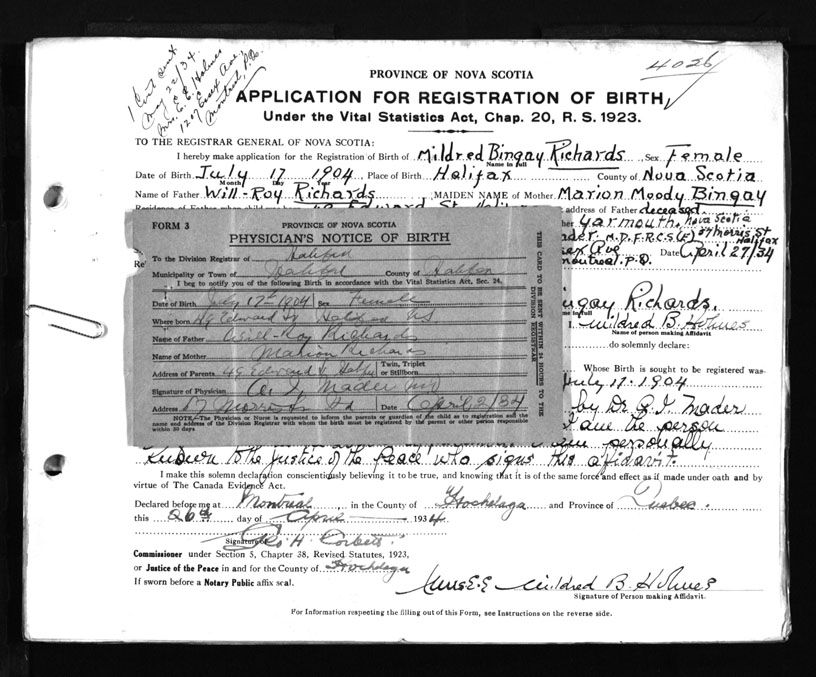 1 Cert Sent
May 22/34.
Mrs. E. E. Holmes
1207 Essex Ave.
Montreal, P.Q.
4026
PROVINCE OF NOVA SCOTIA
APPLICATION FOR REGISTRATION OF BIRTH
Under the Vital Statistics Act, Chap. 20, R. S. 1923.
TO THE REGISTRAR GENERAL OF NOVA SCOTIA:
I hereby make application for the Registration of Birth of Mildred Bingay Richards Sex Female
Name in full
Date of Birth July 17 1904 Place of Birth Halifax County of Nova Scotia
Month Day Year
Name of Father Will-Roy Richards MAIDEN NAME of Mother Marion Moody Bingay
address of Father deceased.
Yarmouth, Nova Scotia
M.D. F.R.C.S.(E) 57 Morris St Halifax
Essex Ave Date April 27/34
Montreal. P.Q.
Re
FORM 3
PROVINCE OF NOVA SCOTIA
PHYSICIAN'S NOTICE OF BIRTH
To the Division Registrar of Halifax
Municipality or Town of Halifax County of Halifax
I beg to notify you of the following Birth in accordance with the Vital Statistics Act, Sec. 24.
Date of Birth July 17th 1904 Sex Female
Where born 49 Edward St Halifax NS
Name of Father Will-Roy Richards
Name of Mother Marion Richards
Address of Parents 49 Edward St Twin, Triplet or Stillborn.
Signature of Physician A. I. Mader MD
Address Morris St Date April 2/34
NOTE.—The Physician or Nurse is requested to inform the parents or guardian of the child as to registration and the
name and address of the Division Registrar with whom the birth must be registered by the parent or other person responsible
within 20 days
THIS CARD TO BE SENT WITHIN 24 HOURS TO THE DIVISION REGISTRAR
Bingay Richards.
Name in full
I, Mildred B. Holmes
Name of person making Affidavit
do solemnly declare:
Whose Birth is sought to be registered was
July 17. 1904
by Dr. A. I. Mader
the person
personally
known to the Justice of the Peace who signs this affidavit.
I make this solemn declaration conscientiously believing it to be true, and knowing that it is of the same force and effect as if made under oath and by
virtue of The Canada Evidence Act.
Declared before me at Montreal, in the County of Hochelaga and Province of Quebec.
this 26th day of April 1934.
Signature Geo. H. Corbett
Commissioner under Section 5, Chapter 38, Revised Statutes, 1923,
or Justice of the Peace in and for the County of Hochelaga
If sworn before a Notary Public affix seal.
Mrs E.E Mildred B. Holmes
Signature of Person making Affidavit.
For Information respecting the filling out of this Form, see Instructions on the reverse side.